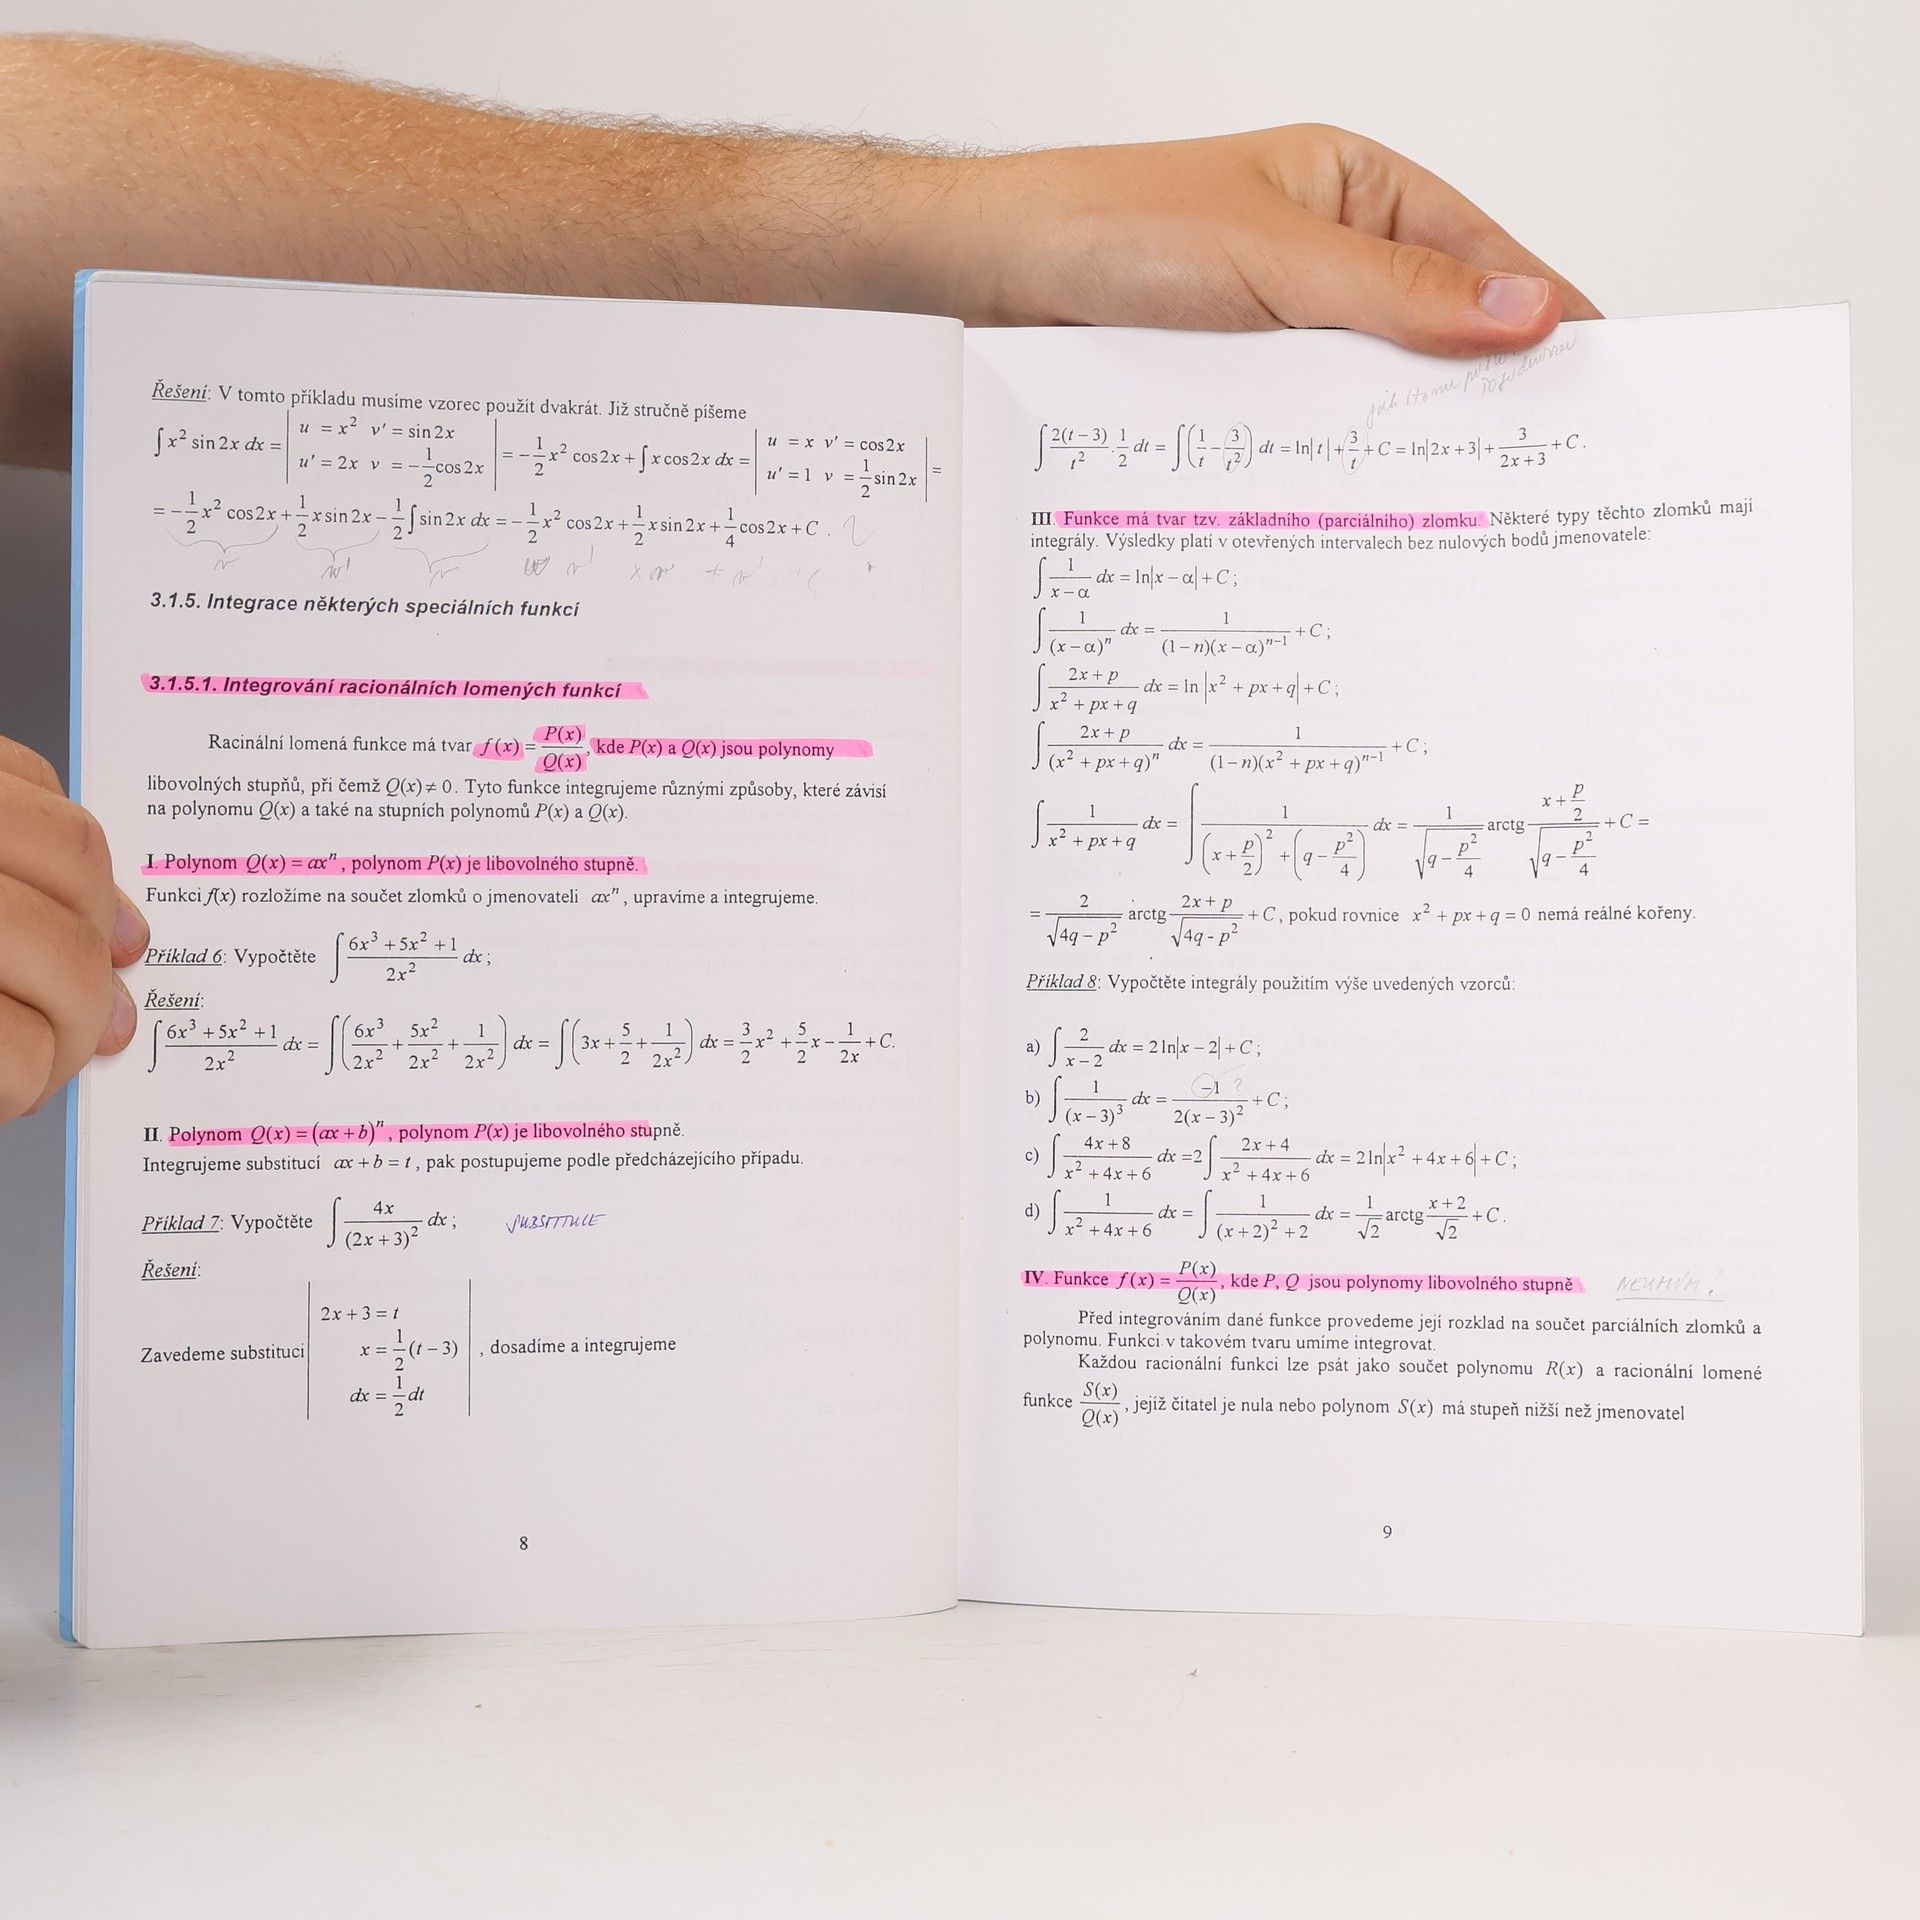 Řešení: V tomto příkladu musíme vzorec použít dvakrát. Již stručně píšeme
∫ x² sin 2x dx = | u = x² v' = sin 2x u' = 2x v = −1/2 cos 2x | = −1/2 x² cos 2x + ∫ x cos 2x dx = | u = x v' = cos 2x u' = 1 v = 1/2 sin 2x | =
= −1/2 x² cos 2x + 1/2 x sin 2x − 1/2 ∫ sin 2x dx = −1/2 x² cos 2x + 1/2 x sin 2x + 1/4 cos 2x + C .
3.1.5. Integrace některých speciálních funkcí
3.1.5.1. Integrování racionálních lomených funkcí
Racinální lomená funkce má tvar f(x) = P(x)/Q(x), kde P(x) a Q(x) jsou polynomy
libovolných stupňů, při čemž Q(x) ≠ 0. Tyto funkce integrujeme různými způsoby, které závisí
na polynomu Q(x) a také na stupních polynomů P(x) a Q(x).
I. Polynom Q(x) = axⁿ, polynom P(x) je libovolného stupně.
Funkci f(x) rozložíme na součet zlomků o jmenovateli axⁿ, upravíme a integrujeme.
Příklad 6: Vypočtěte ∫ (6x³ + 5x² + 1)/(2x²) dx ;
Řešení:
∫ (6x³ + 5x² + 1)/(2x²) dx = ∫ (6x³/2x² + 5x²/2x² + 1/2x²) dx = ∫ (3x + 5/2 + 1/2x²) dx = 3/2 x² + 5/2 x − 1/2x + C.
II. Polynom Q(x) = (ax + b)ⁿ, polynom P(x) je libovolného stupně.
Integrujeme substitucí ax + b = t, pak postupujeme podle předcházejícího případu.
Příklad 7: Vypočtěte ∫ 4x/(2x + 3)² dx ; SUBSTITUCE
Řešení:
2x + 3 = t
Zavedeme substituci x = 1/2 (t − 3) , dosadíme a integrujeme
dx = 1/2 dt
8
∫ 2(t − 3)/t² · 1/2 dt = ∫ (1/t − 3/t²) dt = ln|t| + 3/t + C = ln|2x + 3| + 3/(2x + 3) + C .
III. Funkce má tvar tzv. základního (parciálního) zlomku. Některé typy těchto zlomků mají
integrály. Výsledky platí v otevřených intervalech bez nulových bodů jmenovatele:
∫ 1/(x − α) dx = ln|x − α| + C ;
∫ 1/(x − α)ⁿ dx = 1/((1 − n)(x − α)ⁿ⁻¹) + C ;
∫ (2x + p)/(x² + px + q) dx = ln |x² + px + q| + C ;
∫ (2x + p)/(x² + px + q)ⁿ dx = 1/((1 − n)(x² + px + q)ⁿ⁻¹) + C ;
∫ 1/(x² + px + q) dx = ∫ 1/((x + p/2)² + (q − p²/4)) dx = 1/√(q − p²/4) arctg (x + p/2)/√(q − p²/4) + C =
= 2/√(4q − p²) arctg (2x + p)/√(4q - p²) + C, pokud rovnice x² + px + q = 0 nemá reálné kořeny.
Příklad 8: Vypočtěte integrály použitím výše uvedených vzorců:
a) ∫ 2/(x − 2) dx = 2 ln|x − 2| + C ;
b) ∫ 1/(x − 3)³ dx = −1/(2(x − 3)²) + C ; ?
c) ∫ (4x + 8)/(x² + 4x + 6) dx = 2 ∫ (2x + 4)/(x² + 4x + 6) dx = 2 ln|x² + 4x + 6| + C ;
d) ∫ 1/(x² + 4x + 6) dx = ∫ 1/((x + 2)² + 2) dx = 1/√2 arctg (x + 2)/√2 + C .
IV. Funkce f(x) = P(x)/Q(x), kde P, Q jsou polynomy libovolného stupně NEUMÍM!
Před integrováním dané funkce provedeme její rozklad na součet parciálních zlomků a
polynomu. Funkci v takovém tvaru umíme integrovat.
Každou racionální funkci lze psát jako součet polynomu R(x) a racionální lomené
funkce S(x)/Q(x), jejíž čitatel je nula nebo polynom S(x) má stupeň nižší než jmenovatel
9